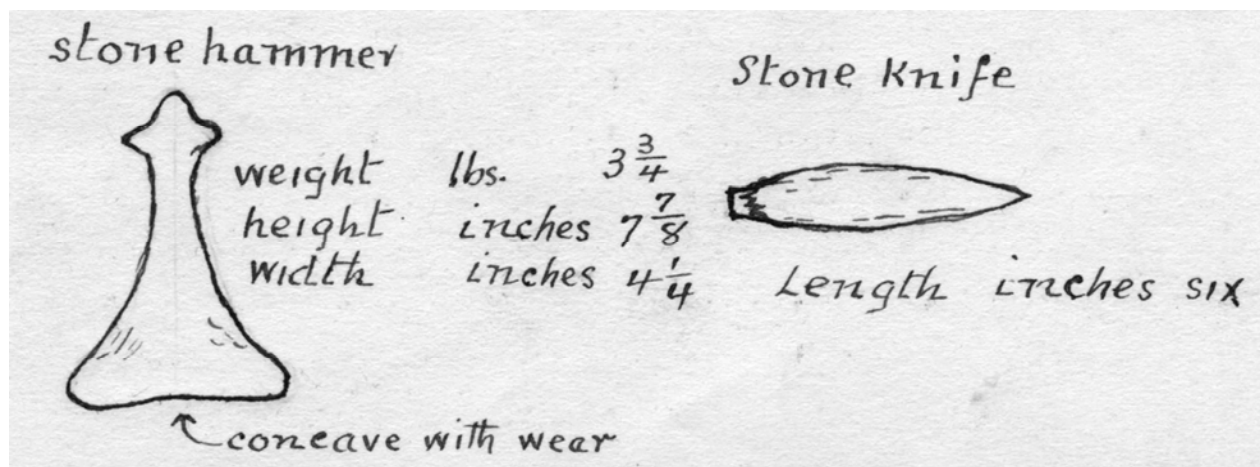 stone hammer
Stone Knife
weight lbs. 3 3/4
height inches 7 7/8
width inches 4 1/4
Length inches six
concave with wear